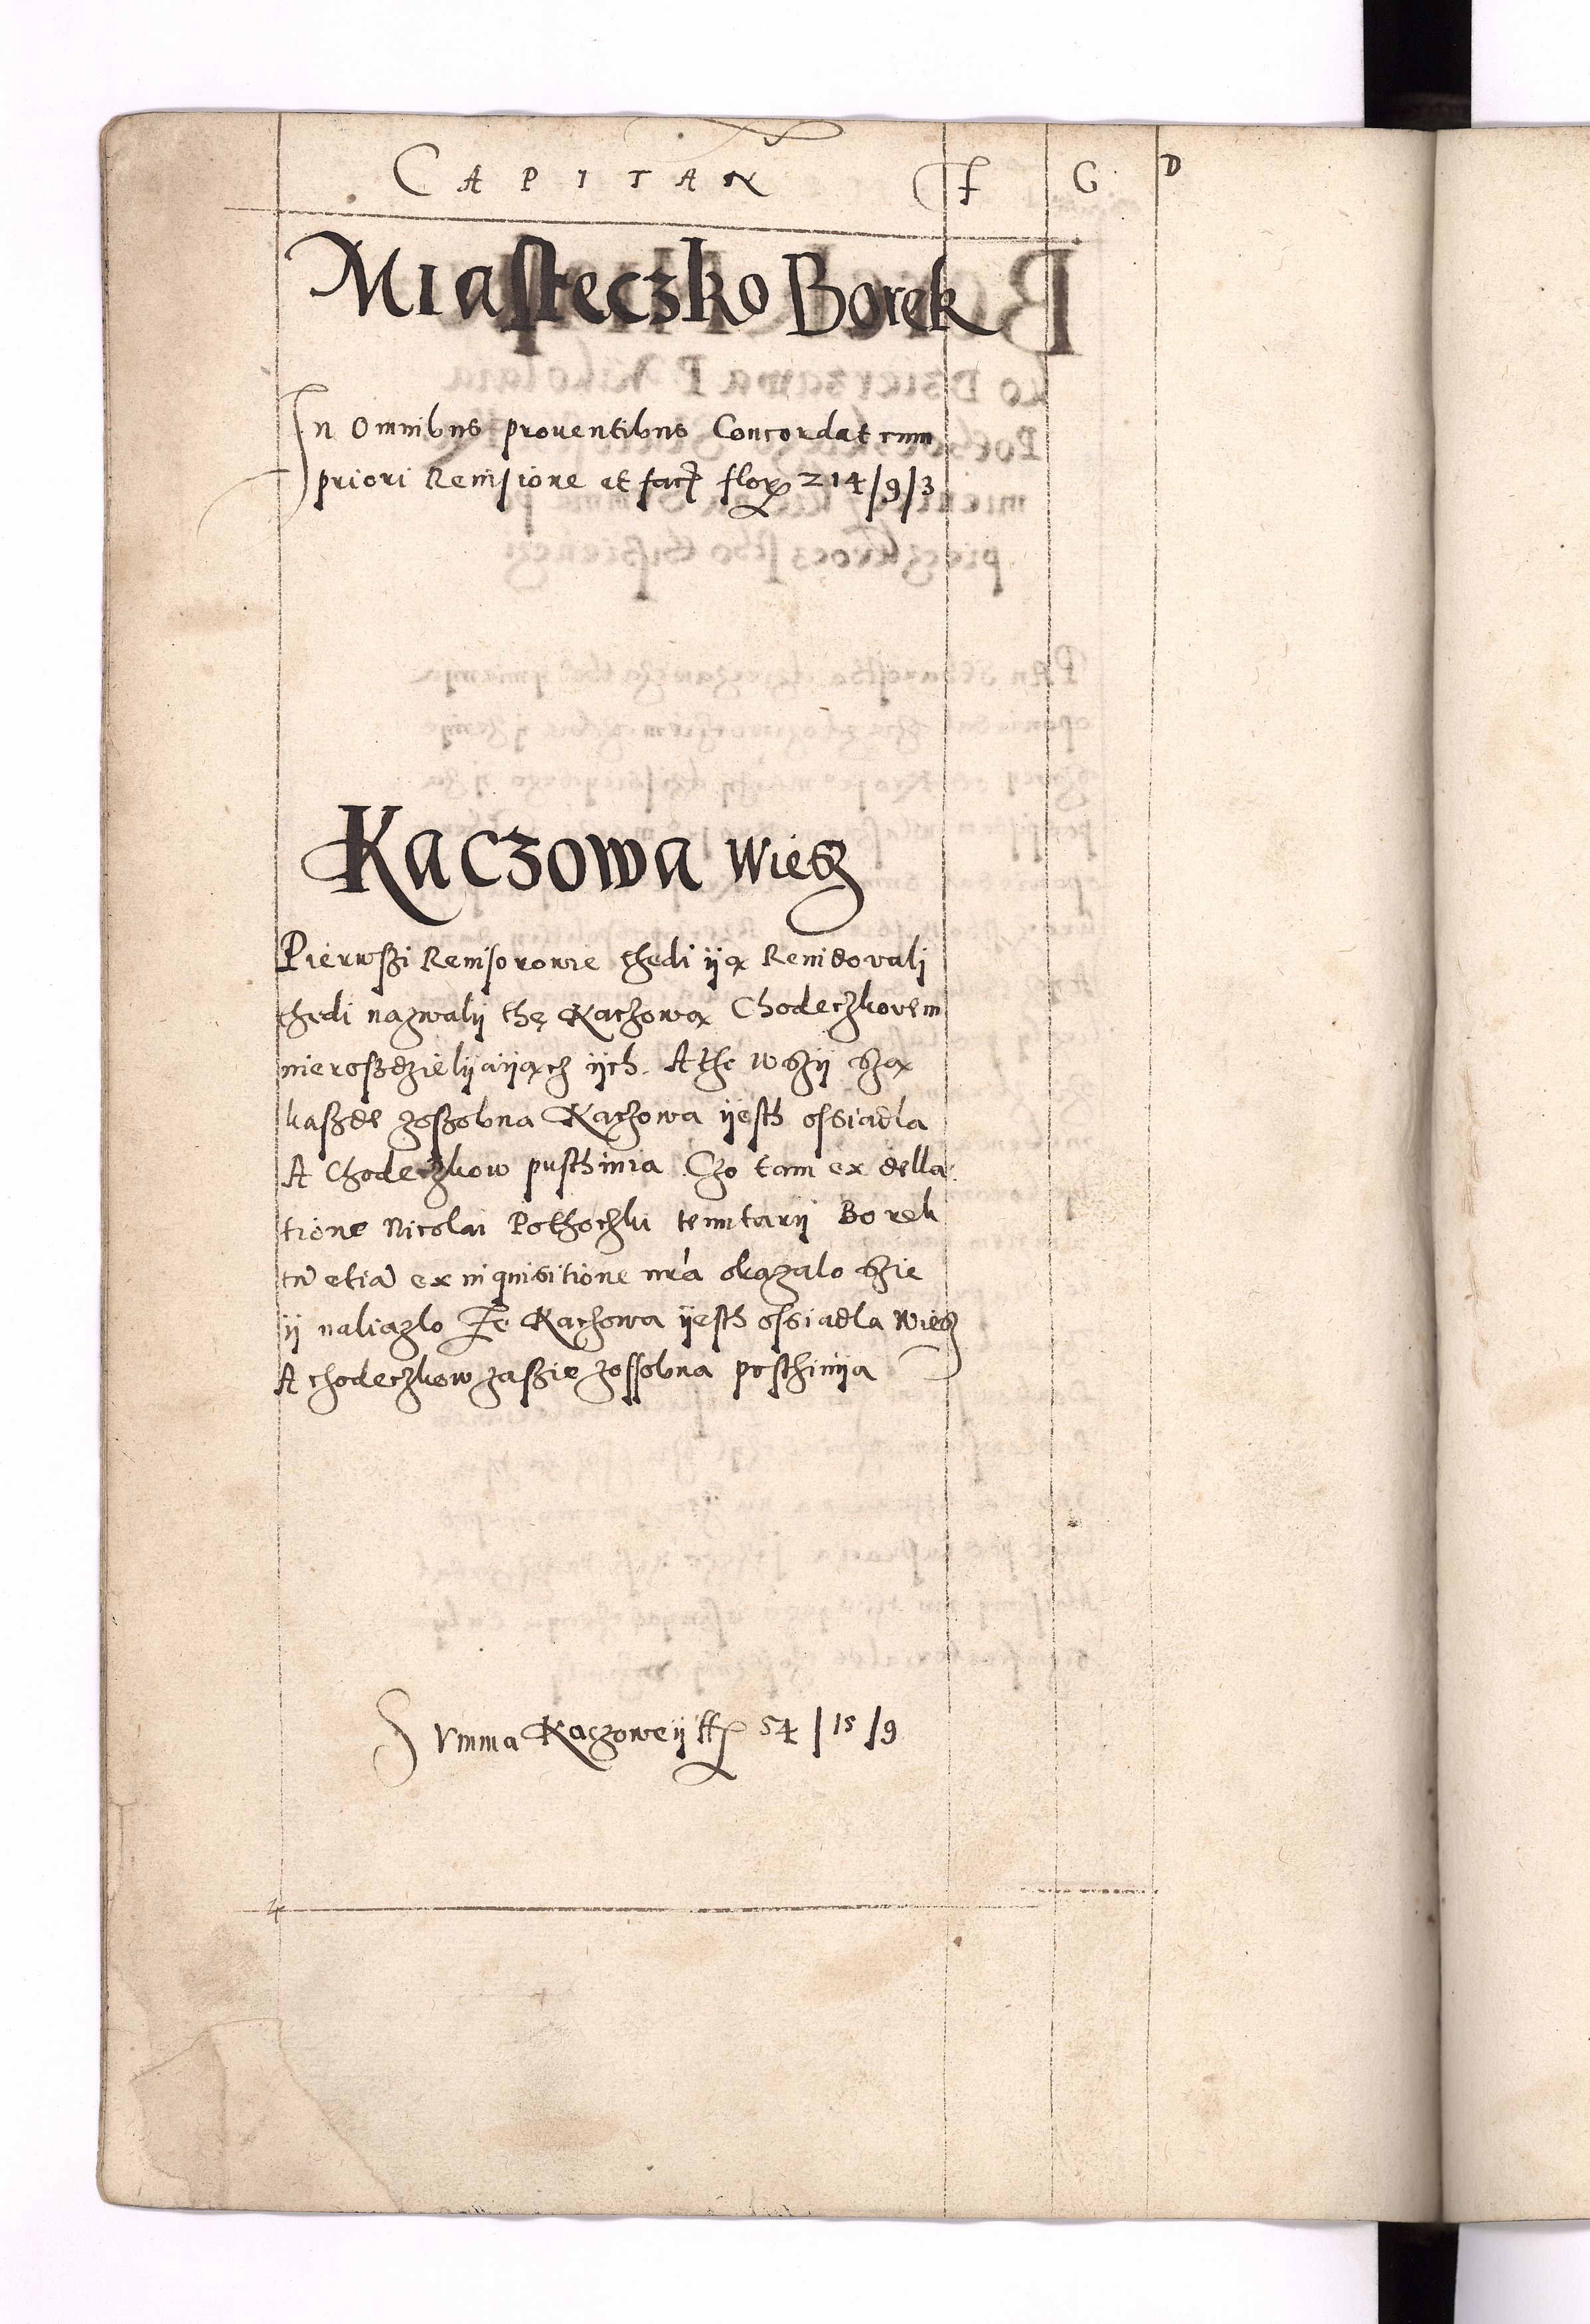 CAPITAN F G D
Miasteczko Borek
In Omnibus prouentibus Concordat cum
priori Reuisione et fact flor 214/9/3
Kaczowa Wies
Pierwszi Reuisorowie thedi iią Reuidovalj
thedi nazwalij thę Kaczową Chodeczkovem
nierosdzielijaijącz ijch. A tho wszij szą
kaszde zoszobna Kaczowa ijesth ossiadla
A Chodeczkow pusthinia Czo tam ex della:
tione Nicolai Pothoczki tenutarij Borek
tū etiā ex inquisitione nrā okazalo szie
ij naliazlo Ze Kaczowa ijesth ossiadla wies
A chodeczkow zaszie zossobna posthinija
Summa Kaczoweij ff 54/15/9